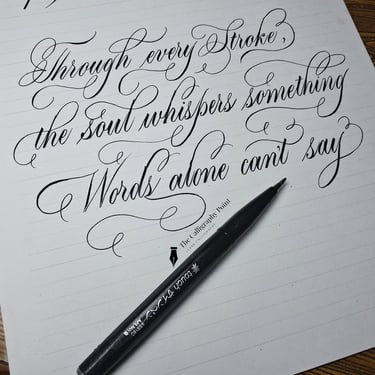 Through every Stroke,
the soul whispers something
Words alone can't say
The Calligraphy Point
touch